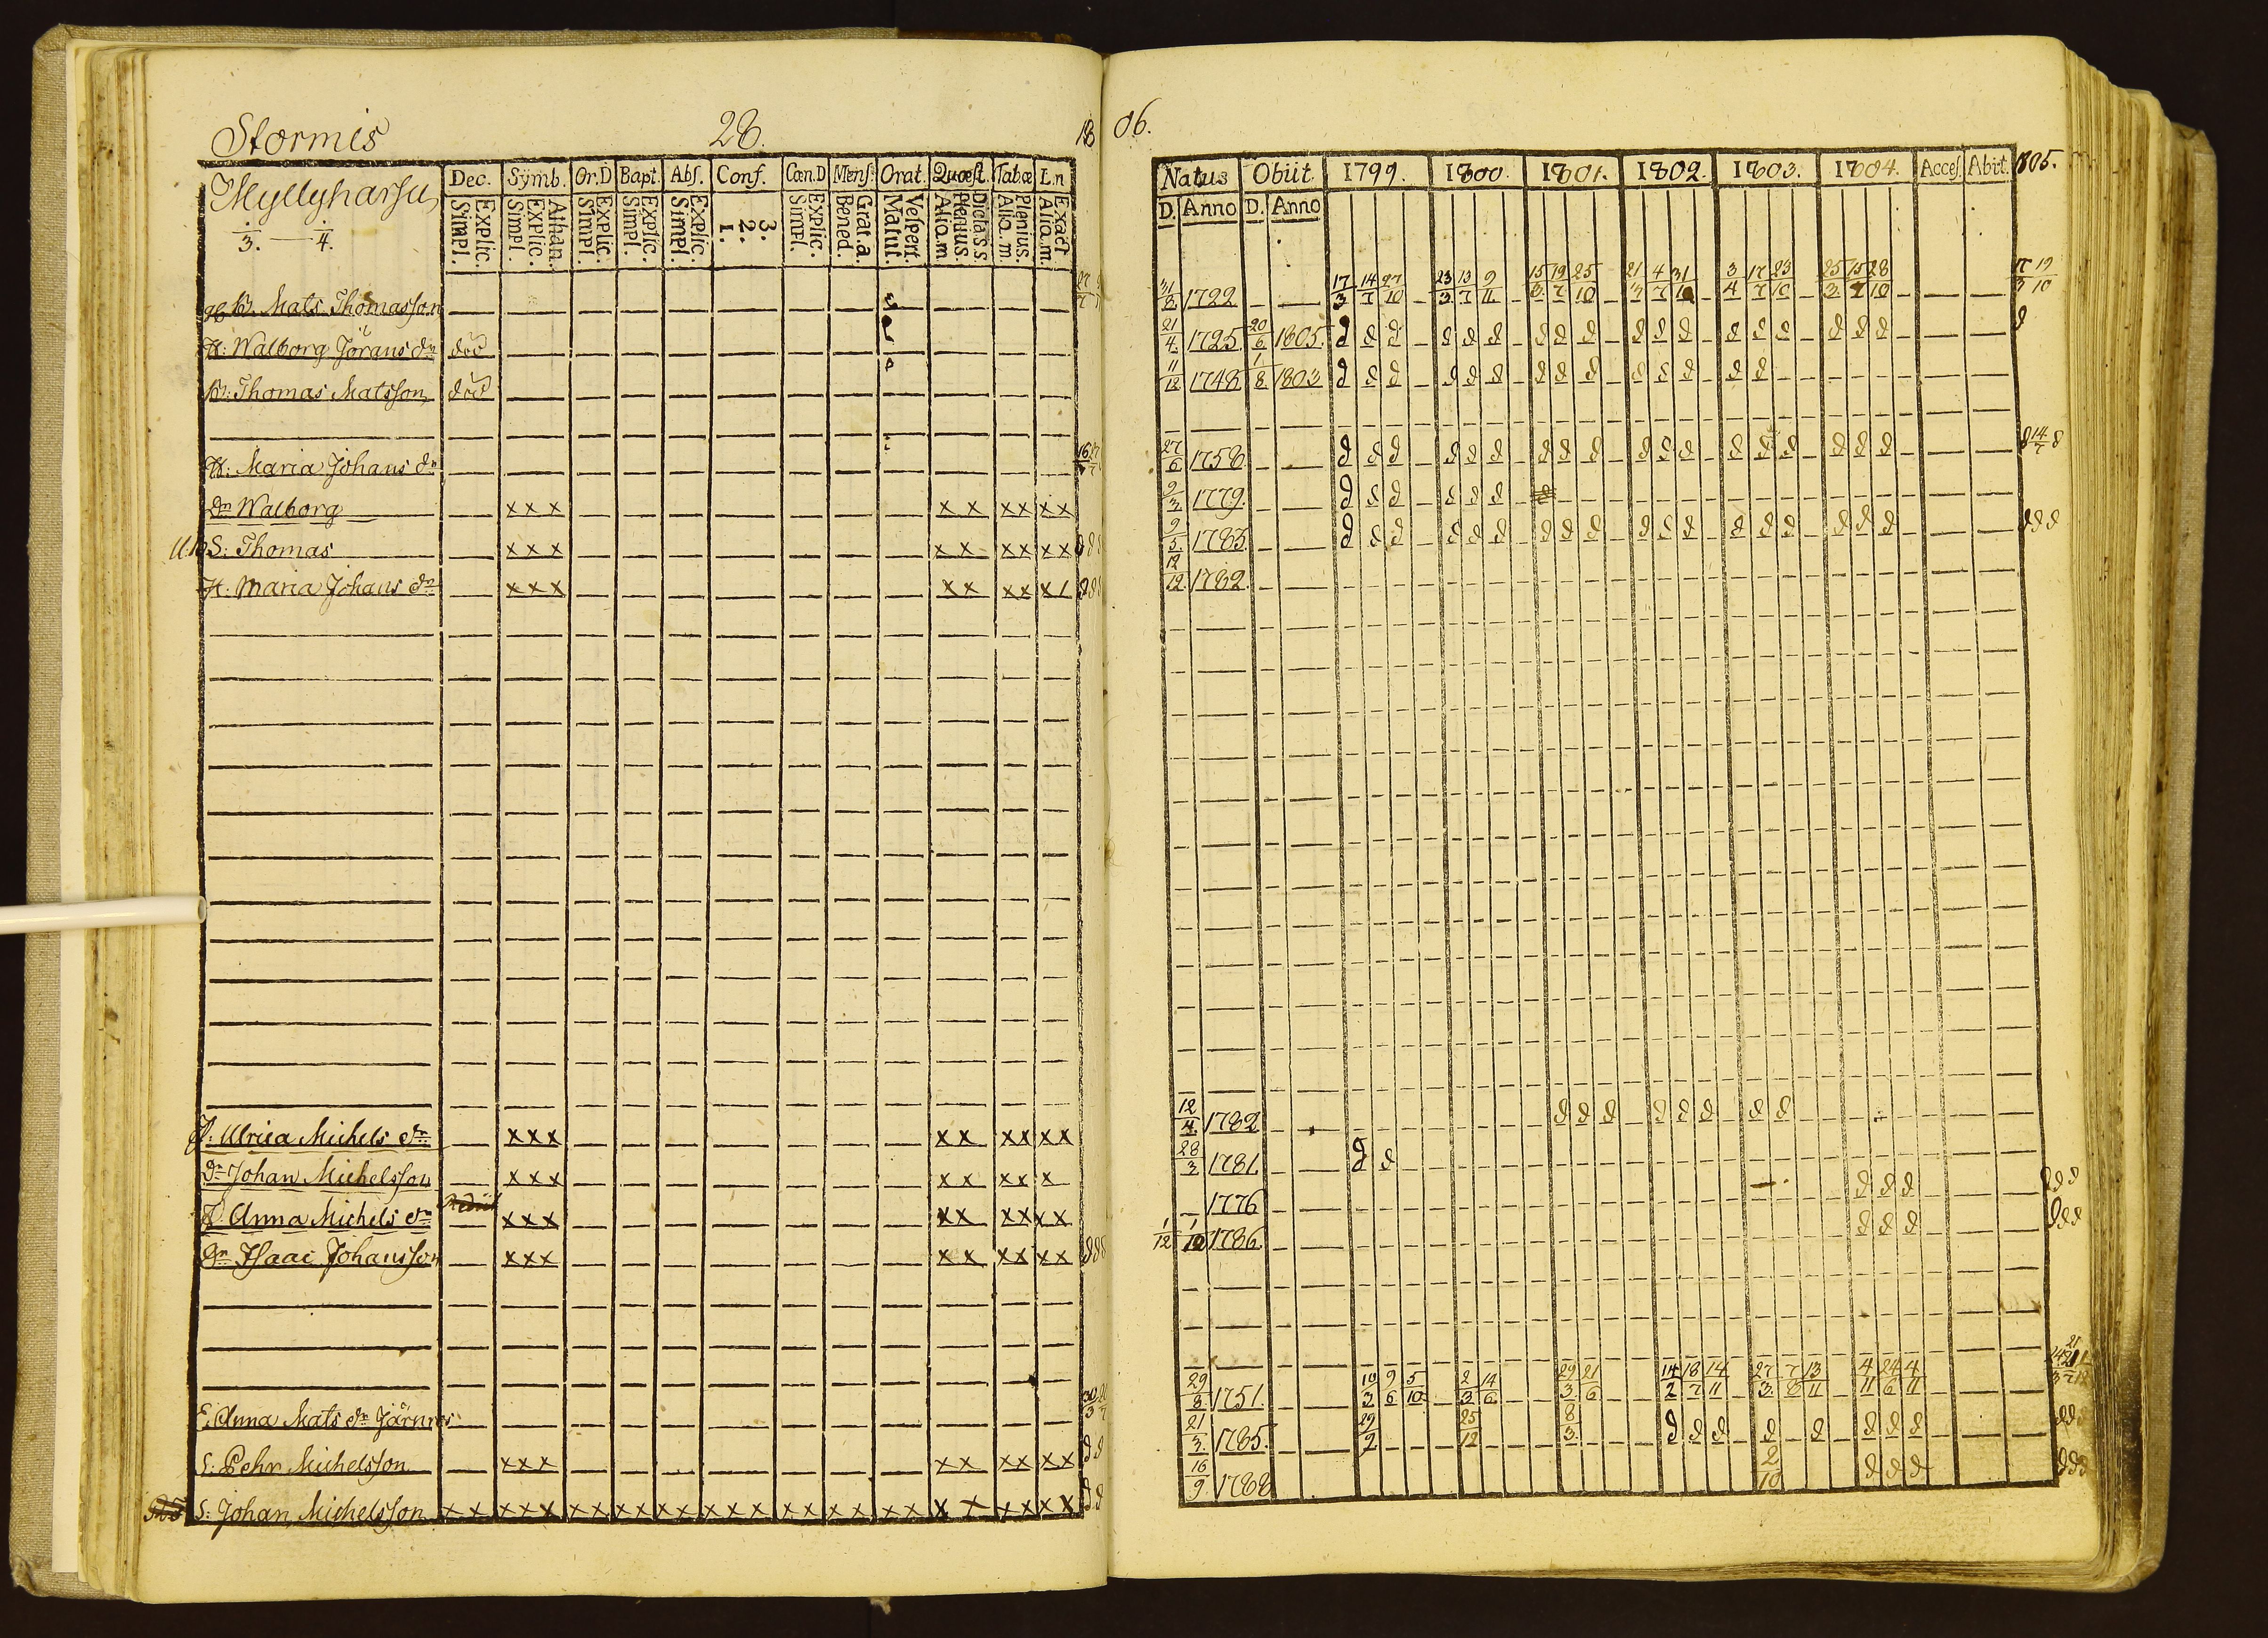 Stormis 28. 18
Myllyharju
3. — 4.
Dec. Symb. Or.D Bapt. Abſ. Conf. Cœn.D Menſ. Orat. Quœſt. Tabœ L.n
Explic. Simpl. Athan. Explic. Simpl. Explic. Simpl. Explic. Simpl. Explic. Simpl. 3. 2. 1. Explic. Simpl. Grat.a. Bened. Veſpert. Matut. Dicta S.S. Plenius. Aliq.m. Plenius. Aliq.m. Exact Aliq.m.
B. Mats Thomasſon
H: Walborg Jörans dr död
B: Thomas Matsſon död
H: Maria Johans dr
Dr Walborg x x x x x x x x x
S: Thomas x x x x x x x x x
H. Maria Johans dr x x x x x x x x
P. Ulrica Michels dr x x x x x x x x x
Dr Johan Michelsſon x x x x x x x x
P Anna Michels dr x x x x x x x x x
Dr Iſaac Johansſon x x x x x x x x x
E. Anna Mats dr Järnros
S: Pehr Michelsſon x x x x x x x x x
S: Johan Michelsſon x x x x x x x x x x x x x x x x x x x x x x x x x x x x
06.
Natus Obiit. 1799. 1800. 1801. 1802. 1803. 1804. Acceſ. Abiit. 1805.
D. Anno D. Anno
31/8 1722 17/3 14/7 27/10 23/3 13/7 9/11 15/3 19/7 25/10 21/3 4/7 31/10 3/4 17/7 23/10 25/3 15/7 28/10 17/3 19/10
21/4 1725. 20/6 1805. d d d d d d d d d d d d d d d d d d d
11/12 1748 1/8 1803 d d d d d d d d d d d d d d
27/6 1758. d d d d d d d d d d d d d d d d d d d 14/7 d
9/3 1779. d d d d d d
9/5. 1783. d d d d d d d d d d d d d d d d d d d d d
12/12. 1782.
12/4. 1782 d d d d d d d d
28/3 1781. d d
1776 d d d d d d
1/12 1786. d d d d d d
29/8 1751. 10/3 9/6 5/10 2/3 14/6 29/3 21/6 14/2 18/7 14/11 27/3 7/8 13/11 4/11 24/6 4/11
21/3. 1785. 29/2 25/12 8/3. d d d d d d d d d d d
16/9. 1788 2/10 d d d d d d